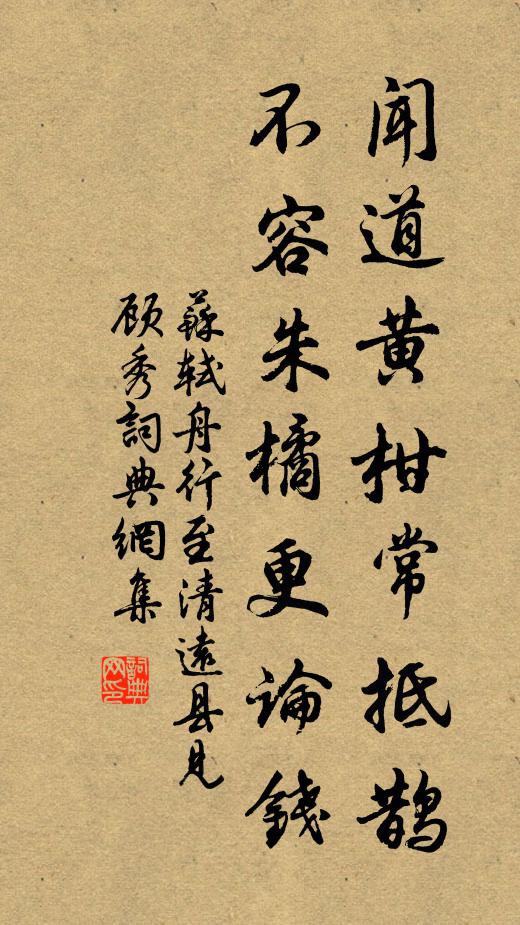 闻道黄柑常抵鹊
不容朱橘更论錢
蘇轼舟行至清遠县见
顾秀詞典網集
詞典
网印